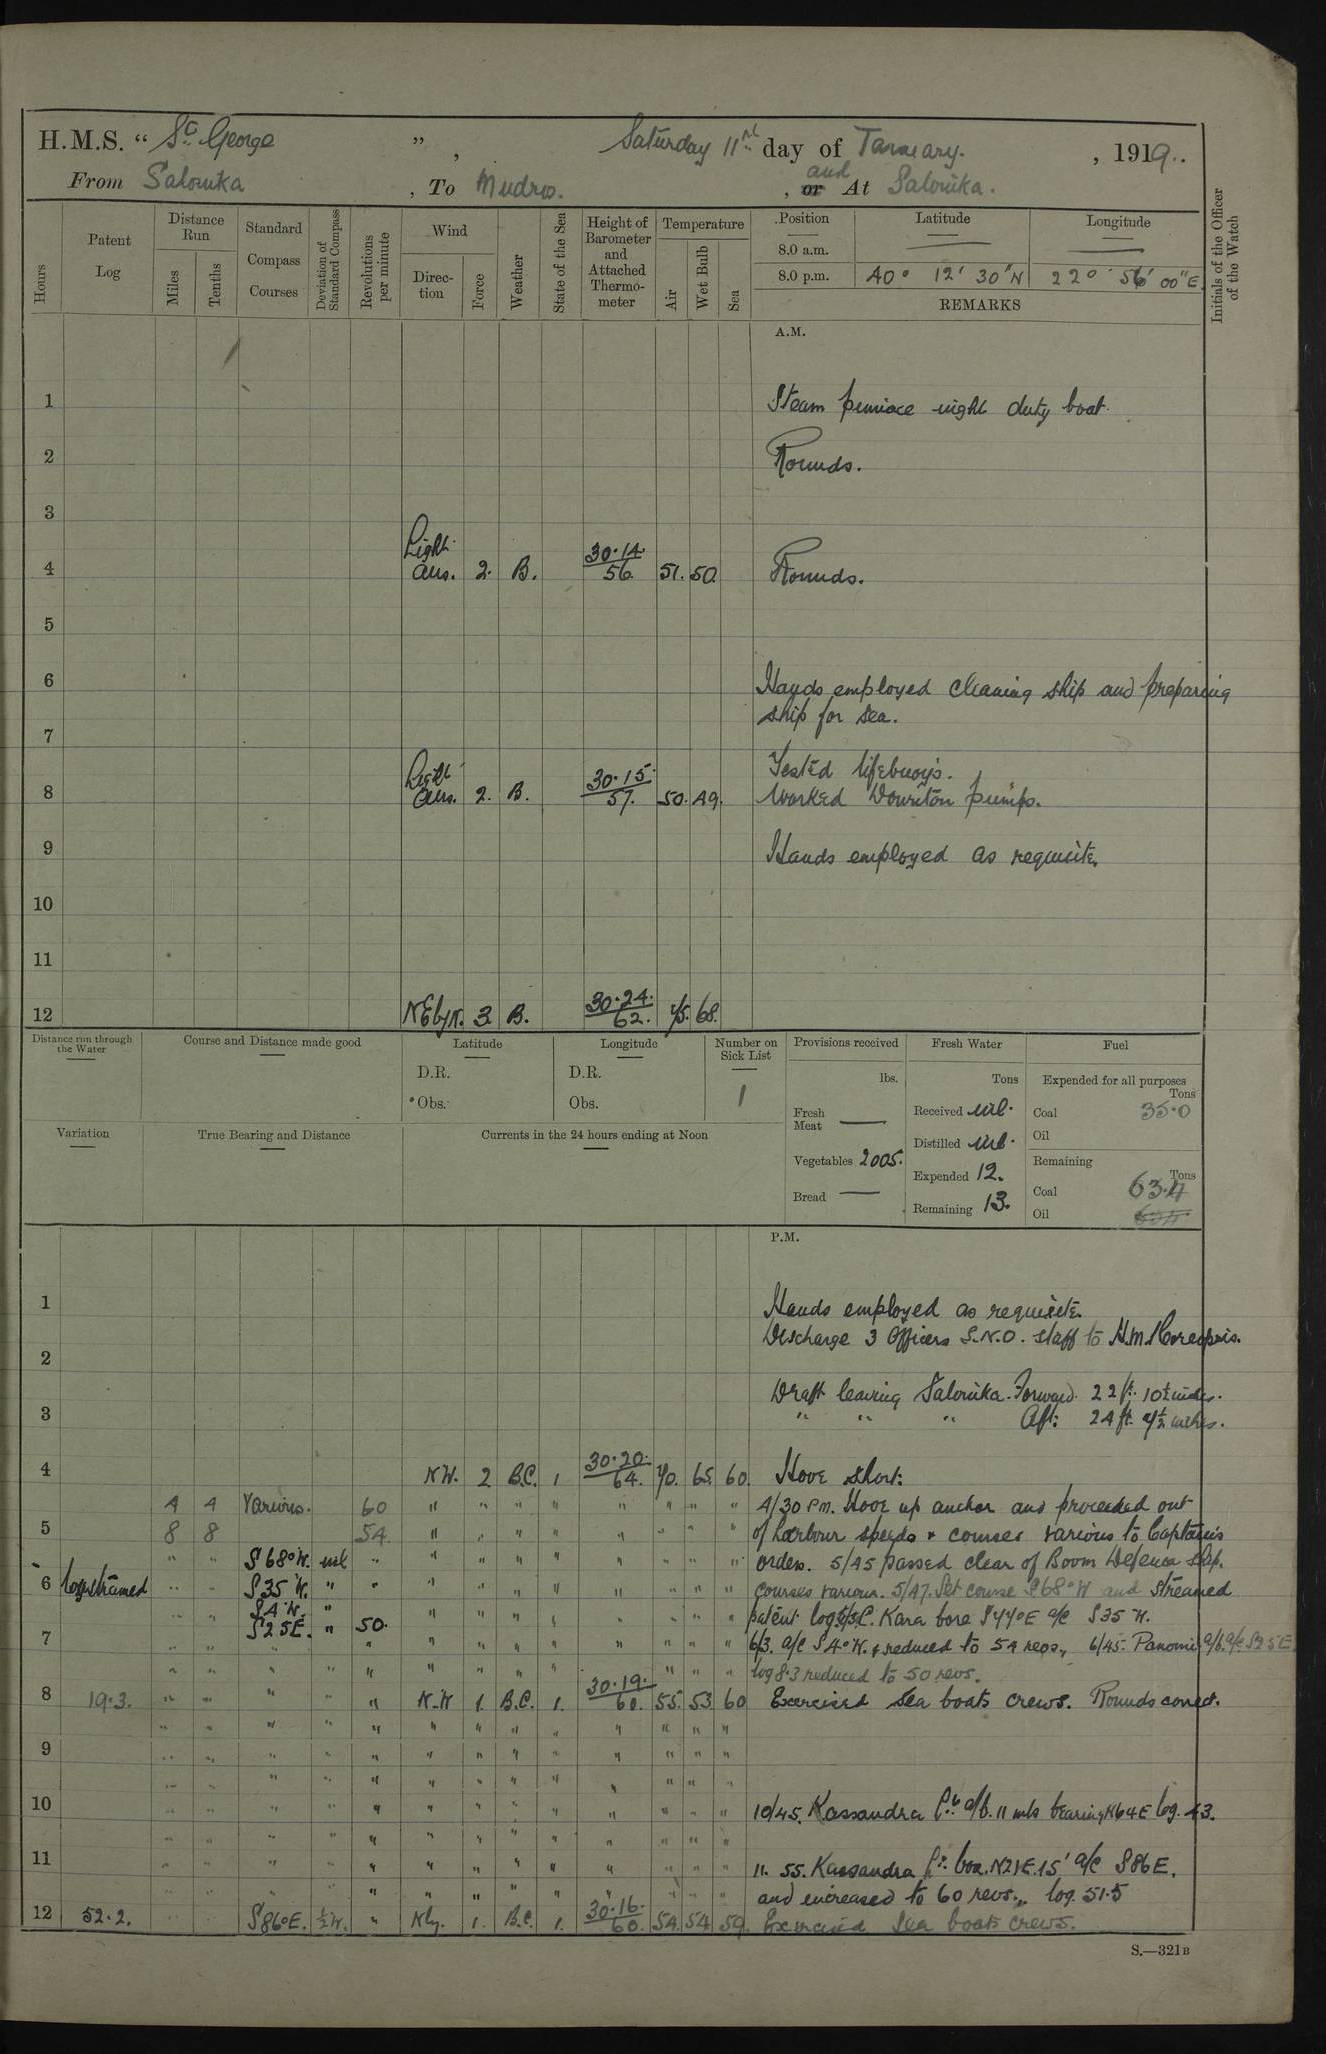 H.M.S. “ St. George ” , Saturday 11th day of January. , 1919..
From Salonika , To Mudros. , or and At Salonika.
Hours
Patent Log
Distance Run
Miles
Tenths
Standard Compass Courses
Deviation of Standard Compass
Revolutions per minute
Wind
Direc-tion
Force
Weather
State of the Sea
Height of Barometer and Attached Thermo-meter
Temperature
Air
Wet Bulb
Sea
Position Latitude Longitude
8.0 a.m. — —
8.0 p.m. 40° 12' 30" N 22° 56' 00" E.
REMARKS
Initials of the Officer of the Watch
A.M.
1 Steam pinnace night duty boat.
2 Rounds.
3
Light 30.14.
4 airs. 2. B. 56. 51. 50. Rounds.
5
6 Hands employed cleaning ship and preparing
ship for sea.
7
Light 30.15. Tested lifebuoys.
8 airs. 2. B. 57. 50. 49. Worked Downton pumps.
9 Hands employed as requisite.
10
11
30.24.
12 NEbyN. 3. B. 62. 75. 68.
Distance run through the Water
Course and Distance made good
Latitude
D.R.
Obs.
Longitude
D.R.
Obs.
Number on Sick List
1
Provisions received
lbs.
Fresh Meat —
Vegetables 2005.
Bread —
Fresh Water
Tons
Received nil.
Distilled nil.
Expended 12.
Remaining 13.
Fuel
Expended for all purposes
Tons
Coal 35.0
Oil
Remaining
Tons
Coal 634
Oil
Variation
True Bearing and Distance
Currents in the 24 hours ending at Noon
P.M.
1 Hands employed as requisite.
Discharge 3 Officers S.N.O. staff to H.M.S Coreopsis.
2
Draft leaving Salonika. Forward. 22 ft. 10½ inches.
3 " " " Aft: 24 ft. 4½ inches.
30.20.
4 N.W. 2 B.C. 1 64. 70. 65. 60. Hove short:
4 4 Various. 60 " " " " " " " " 4/30 P.M. Hove up anchor and proceeded out
5 8 8 54. " " " " " " " " of harbour speeds & courses various to Captains
" " S 68° W. nil " " " " " " " " " orders. 5/45 passed clear of Boom Defence ship.
6 log streamed " " S 35 W. " " " " " " " " " " courses various. 5/47. Set course S 68° W and streamed
S 4 W. "
" " S 25 E. " 50. " " " " " " " " patent log. Kara bore S 77° E a/c S 35 W.
7 " " " " " " " " " " " 6/3. a/c S 4° W. & reduced to 54 revs., 6/45. Panomi a/b. a/c S 25 E.
" " " " " " " " " " " " log 8.3 reduced to 50 revs.
30.19.
8 19.3. " " " " N.W 1. B.C. 1. 60. 55. 53. 60 Exercised sea boats crews. Rounds correct.
" " " " " " " " " " " " "
9 " " " " " " " " " " "
" " " " " " " " " " " "
10 " " " " " " " " " " " " " 10/45. Kassandra Pt. a/b. 11 mls bearing N 64 E log. 43.
" " " " " " " " " " " " "
11 " " " " " " " " " " " " " 11. 55. Kassandra Pt. bore. N 21 E. 15' a/c S 86 E.
" " " " " " " " " " " " and increased to 60 revs., log. 51.5
30.16.
12 52.2. " " S 86° E. ½ W. " Nly. 1. B.C. 1. 60. 54. 54. 59. Exercised Sea boats crews.
S.—321B